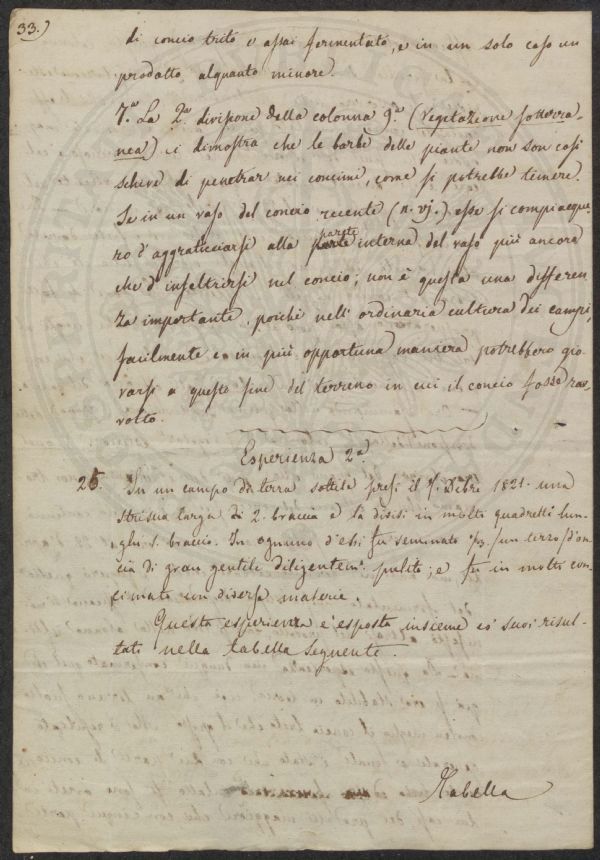 33.)
di concio trito e assai fermentato, e in un solo caso un
prodotto alquanto minore.
7.° La 2.a divisione della colonna 9.a (Vegetazione sotterra-
nea) ci dimostra che le barbe delle piante non son così
schive di penetrar nei concimi, come si potrebbe temere.
Se in un vaso del concio recente (n. vj.) esse si compiacque-
ro d'aggraticciarsi alla parete interna del vaso più ancora
che d'infeltrirsi nel concio; non è questa una differen
za importante, poichè nell'ordinaria cultura dei campi,
facilmente e in più opportuna maniera potrebbero gio-
varsi a questo fine del terreno in cui il concio fosse rav-
volto.
Esperienza 2.a
26. In un campo di terra sottile presi il Dibre 1821. una
striscia larga di 2. braccia e la divisi in molti quadretti lun-
ghi 1. braccio. In ognuno d'essi fu seminato 1/3 (un terzo) d'on-
cia di gran gentile diligentem. pulito; e fu in molti con-
cimato con diverse materie.
Questa esperienza è esposta insieme co' suoi risul-
tati nella tabella seguente.
Tabella